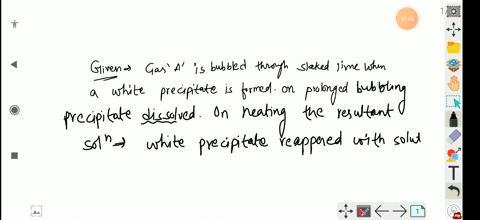 Given → Gas 'A' is bubbled through slaked lime when
a white precipitate is formed. on prolonged bubbling
precipitate dissolved. On heating the resultant
solⁿ → white precipitate reappered with solut